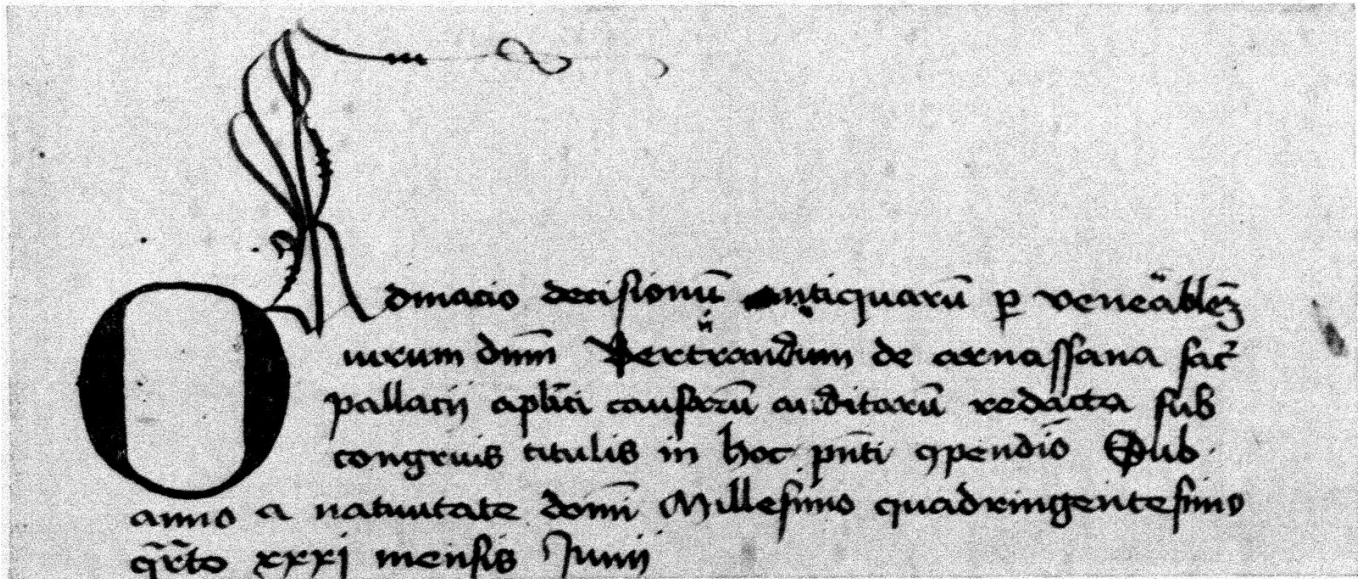 Ordinacio decisionū antiquarū p veneʼablē
uirum dn̄m Bertrandum de arnassana sac̄
pallacij apl̄ici causarū auditorū redacta sub
congruis titulis in hoc pn̄ti ꝯpendio Sub
anno a natiuitate domī Millesimo quadringentesimo
qr̄to xxxj mensis Junij